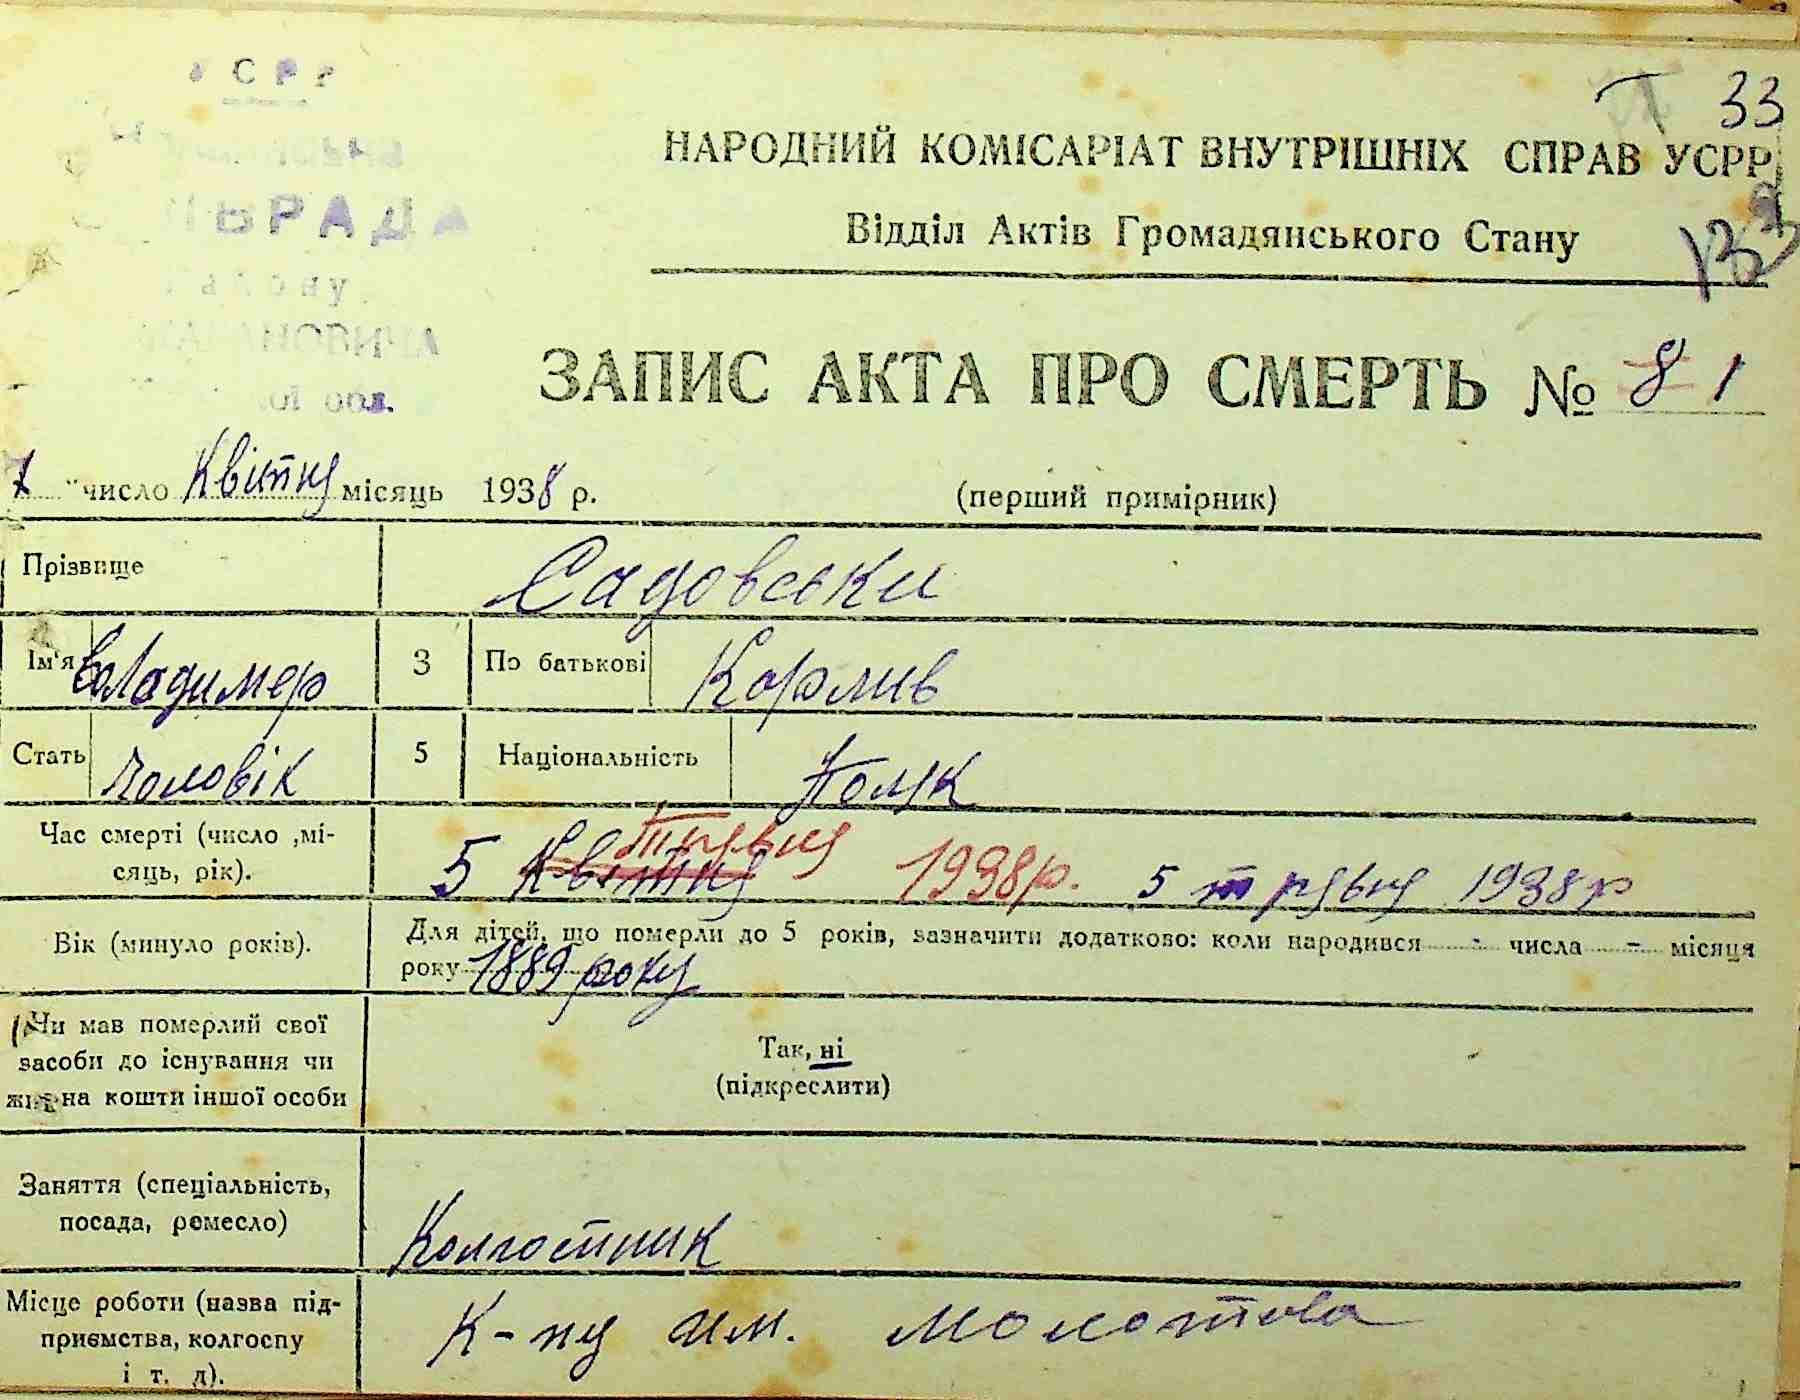 СРР
ЬРАДА
району
КАГАНОВИЧА
обл.
33
НАРОДНИЙ КОМІСАРІАТ ВНУТРІШНІХ СПРАВ УСРР
Відділ Актів Громадянського Стану
ЗАПИС АКТА ПРО СМЕРТЬ № 8 1
" число Квітня місяць 1938 р.
(перший примірник)
Прізвище Садовськи
Ім'я Володимер 3 По батькові
Стать Чоловік 5 Національність Поляк
Час смерті (число ,мі-
сяць, рік).
5 Квітня травня 1938 р. 5 травня 1938 р
Вік (минуло років).
Для дітей, що померли до 5 років, зазначити додатково: коли народився - числа - місяця
року 1889 року
Чи мав померлий свої
засоби до існування чи
жив на кошти іншої особи
Так, ні
(підкреслити)
Заняття (спеціальність,
посада, ремесло)
Колгостник
Місце роботи (назва під-
приємства, колгоспу
і т. д).
К-пу им. Молотова